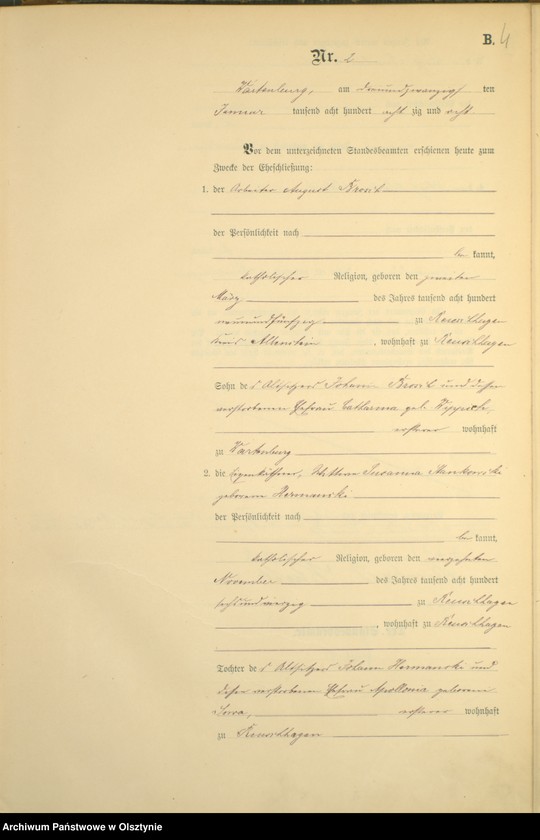 B. 4
Nr. 2
Wartenburg, am dreiundzwanzigsten
Januar tausend acht hundert achtzig und acht
Vor dem unterzeichneten Standesbeamten erschienen heute zum
Zwecke der Eheschließung:
1. der Arbeiter August
der Persönlichkeit nach
be kannt,
katholischer Religion, geboren den zweiten
März des Jahres tausend acht hundert
neunundfünfzig zu Reuschhagen
Kreis Allenstein, wohnhaft zu Reuschhagen
Sohn des Altsitzers Johann und dessen
verstorbenen Ehefrau Catharina geb.
ersterer wohnhaft
zu Wartenburg
2. die Wittwe Susanna
geborene Hermanski
der Persönlichkeit nach
be kannt,
katholischer Religion, geboren den
November des Jahres tausend acht hundert
sechsundvierzig zu Reuschhagen
, wohnhaft zu Reuschhagen
Tochter des Altsitzers Johann Hermanski und
dessen verstorbenen Ehefrau Apollonia geborene
ersterer wohnhaft
zu Reuschhagen
Archiwum Państwowe w Olsztynie